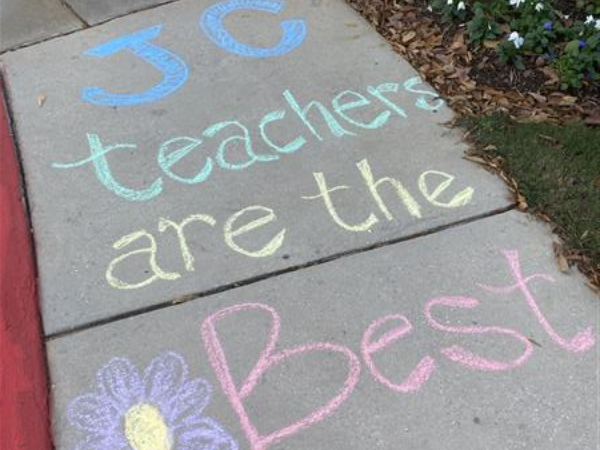 JC
teachers
are the
Best